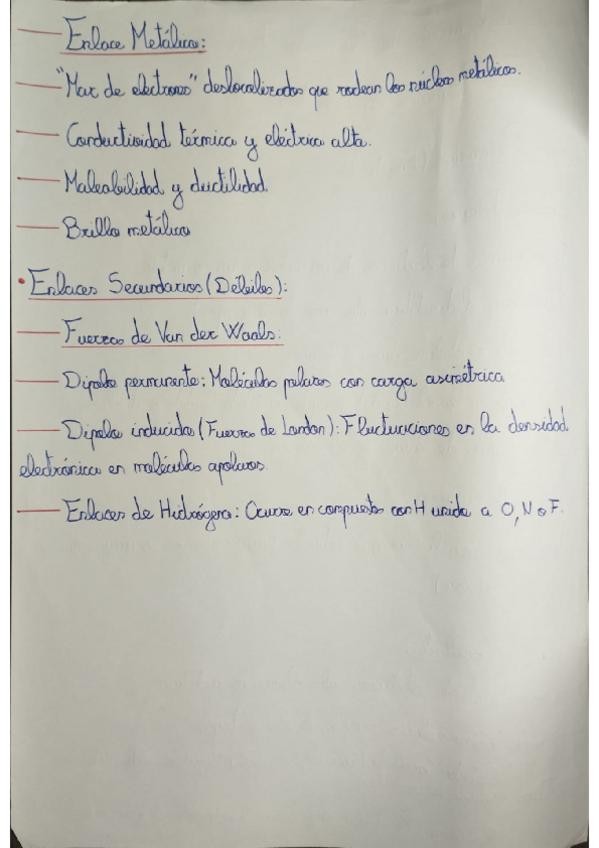 — Enlace Metálico:
— "Mar de electrones" deslocalizados que rodean los núcleos metálicos.
— Conductividad térmica y eléctrica alta.
— Maleabilidad y ductilidad.
— Brillo metálico
• Enlaces Secundarios (Débiles):
— Fuerzas de Van der Waals:
— Dipolo permanente: Moléculas polares con carga asimétrica
— Dipolo inducido (Fuerzas de London): Fluctuaciones en la densidad
electrónica en moléculas apolares.
— Enlaces de Hidrógeno: Ocurre en compuestos con H unido a O, N o F.